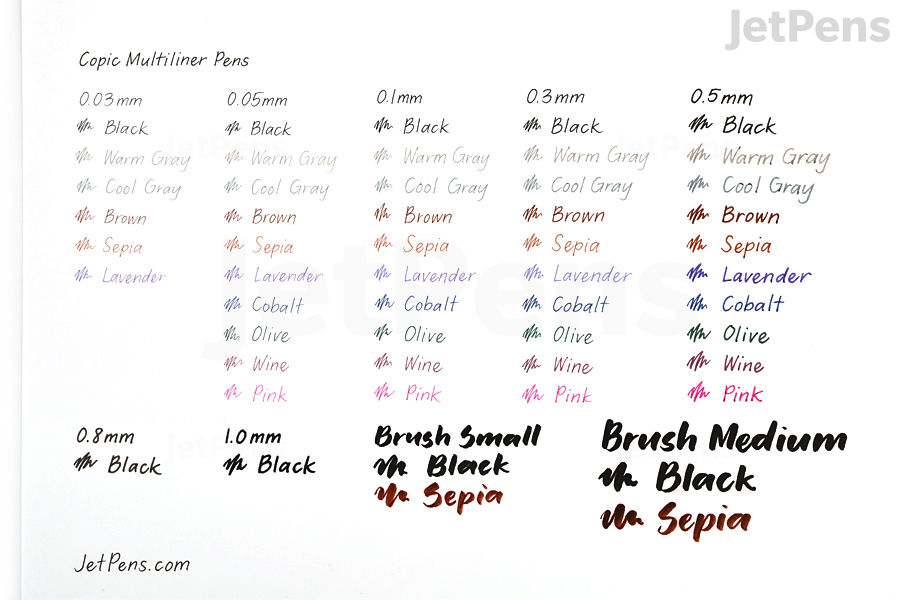 JetPens
Copic Multiliner Pens
0.03mm
Black
Warm Gray
Cool Gray
Brown
Sepia
Lavender
0.05mm
Black
Warm Gray
Cool Gray
Brown
Sepia
Lavender
Cobalt
Olive
Wine
Pink
0.1mm
Black
Warm Gray
Cool Gray
Brown
Sepia
Lavender
Cobalt
Olive
Wine
Pink
0.3mm
Black
Warm Gray
Cool Gray
Brown
Sepia
Lavender
Cobalt
Olive
Wine
Pink
0.5mm
Black
Warm Gray
Cool Gray
Brown
Sepia
Lavender
Cobalt
Olive
Wine
Pink
0.8mm
Black
1.0mm
Black
Brush Small
Black
Sepia
Brush Medium
Black
Sepia
JetPens.com
JetPens
JetPens
JetPens
JetPens